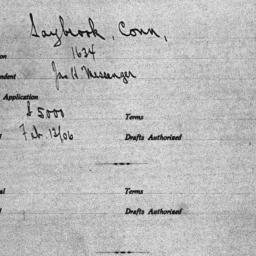 Saybrook, Conn,
on 1634
ndent Jno H Messenger
Application
$5000 Terms
d Feb. 12/06 Drafts Authorized
al Terms
d Drafts Authorized